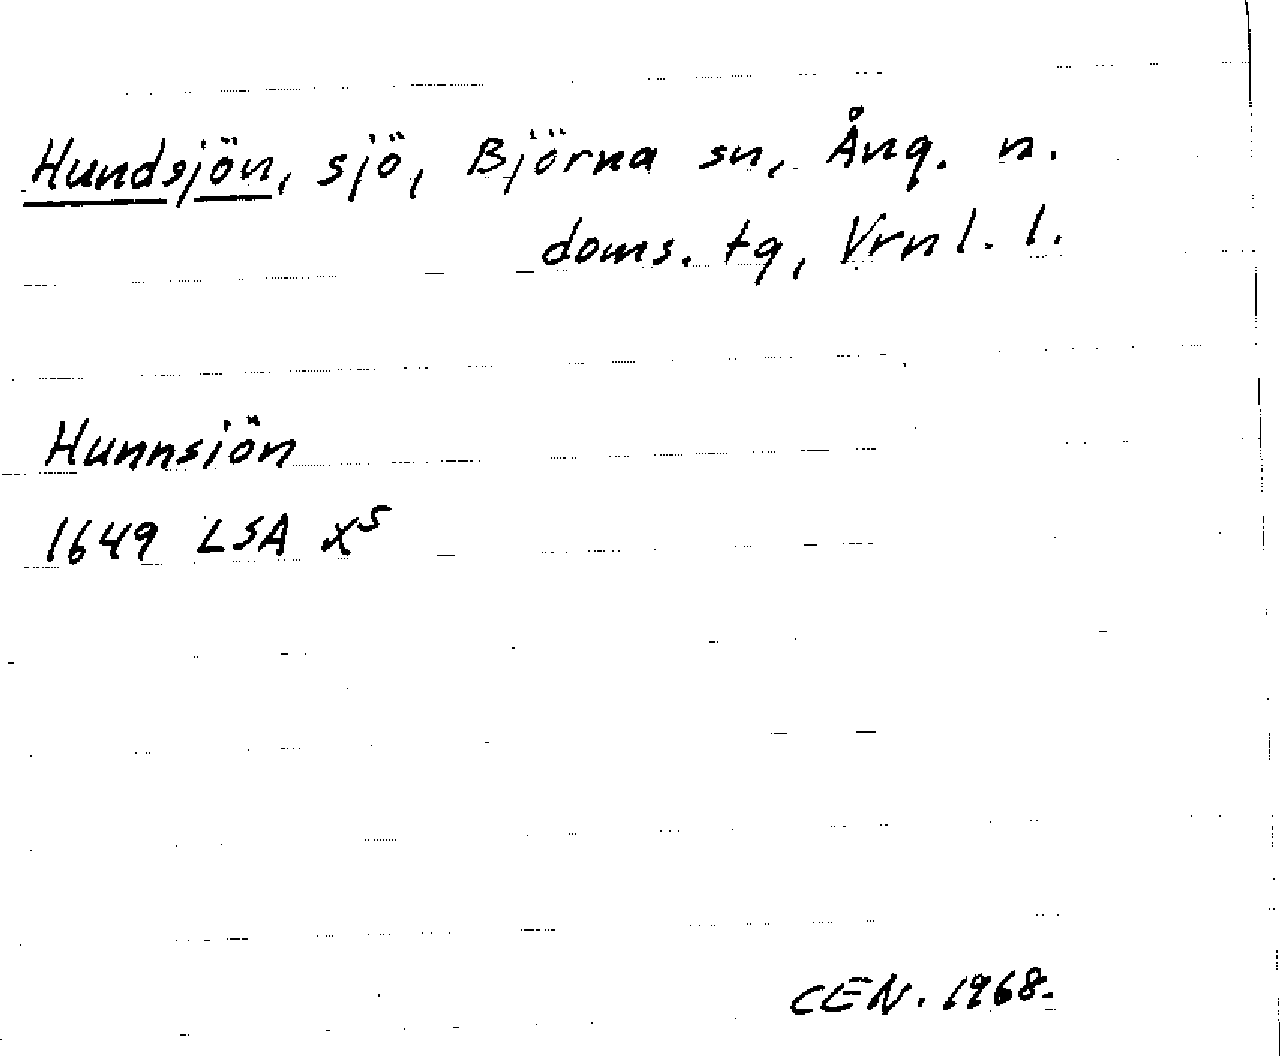 Hundsjön, sjö, Björna sn, Ång. n.
doms. tg, Vrnl. l.
Hunnsiön
1649 LSA X⁵
CEN. 1968.